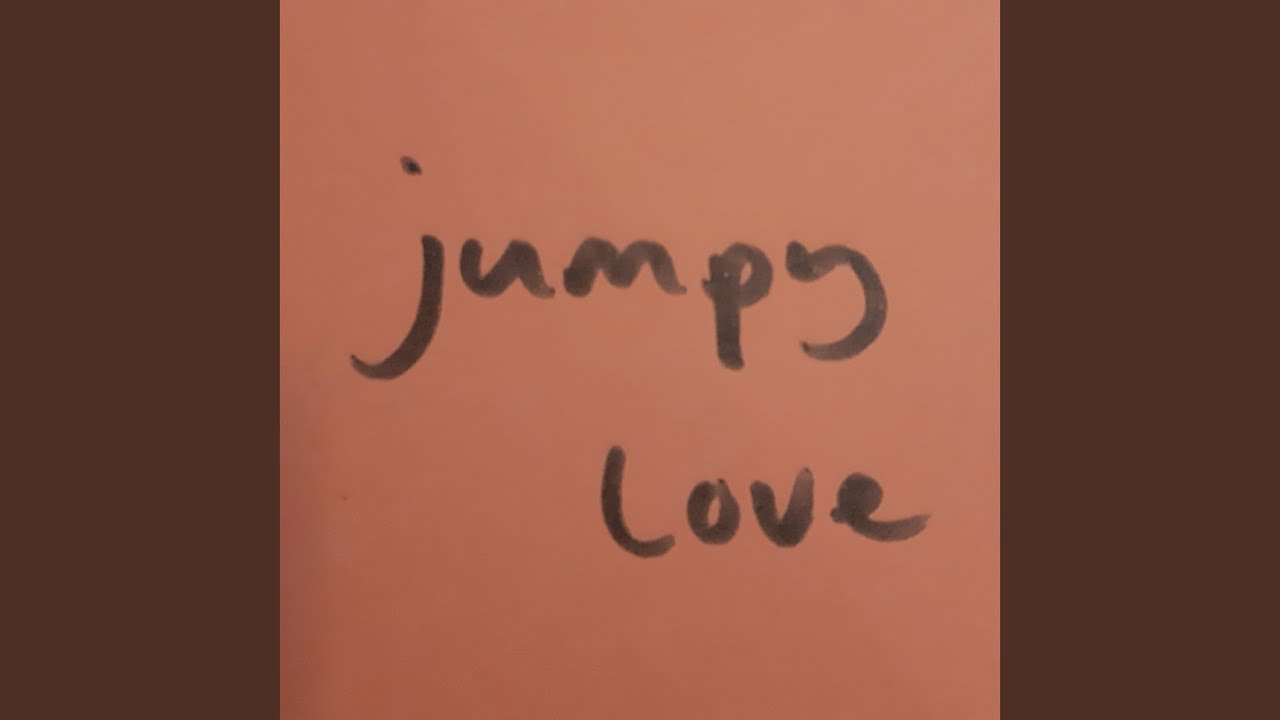 jumpy
love